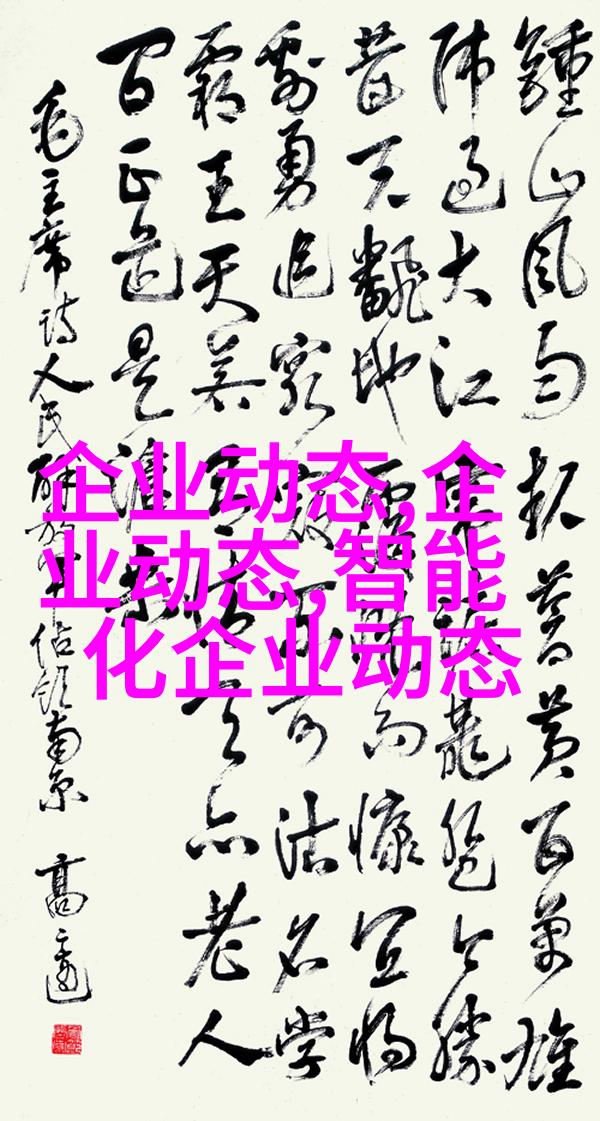 鍾山風雨起蒼黄百萬雄
师過大江虎踞龍盤今勝
昔天翻地覆慨而慷宜將
剩勇追窮寇不可沽名學
霸王天若有情天亦老人
间正道是滄桑
毛主席诗人民解放军佔領南京 高
企业动态,企
业动态,智能
化企业动态